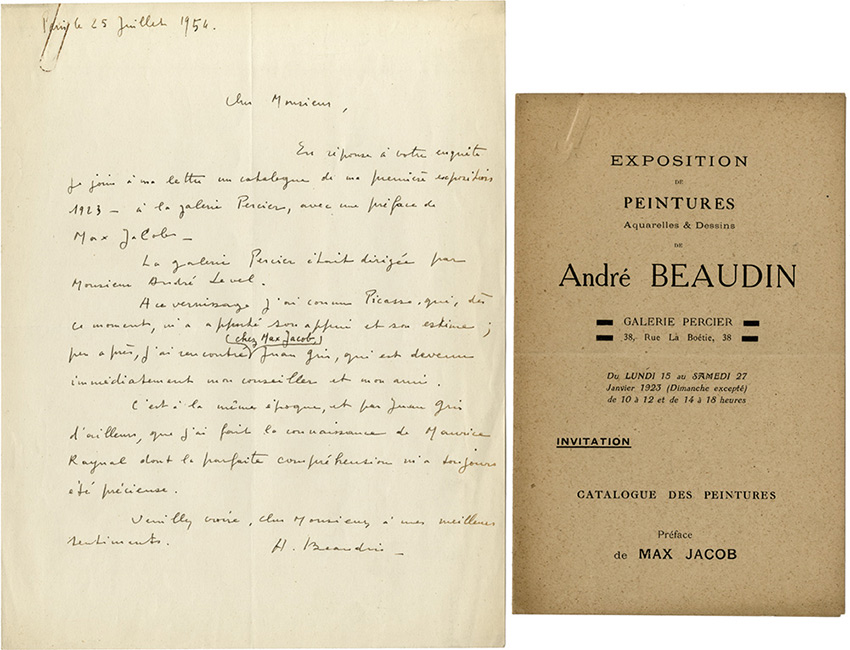 Paris le 25 Juillet 1954.
Cher Monsieur,
En réponse à votre enquête
je joins à ma lettre un catalogue de ma première exposition
1923 – à la galerie Percier, avec une préface de
Max Jacob –
La galerie Percier était dirigée par
Monsieur André Level.
A ce vernissage j'ai connu Picasso, qui, dès
ce moment, m'a apporté son appui et son estime ;
(chez Max Jacob)
peu après, j'ai rencontré Juan Gris, qui est devenu
immédiatement mon conseiller et mon ami.
C'est à la même époque, et par Juan Gris
d'ailleurs, que j'ai fait la connaissance de Maurice
Raynal dont la parfaite compréhension m'a toujours
été précieuse.
Veuillez croire, cher Monsieur, à mes meilleurs
sentiments.
A. Beaudin –
EXPOSITION
DE
PEINTURES
Aquarelles & Dessins
DE
André BEAUDIN
GALERIE PERCIER
38, Rue La Boëtie, 38
Du LUNDI 15 au SAMEDI 27
Janvier 1923 (Dimanche excepté)
de 10 à 12 et de 14 à 18 heures
INVITATION
CATALOGUE DES PEINTURES
Préface
de MAX JACOB